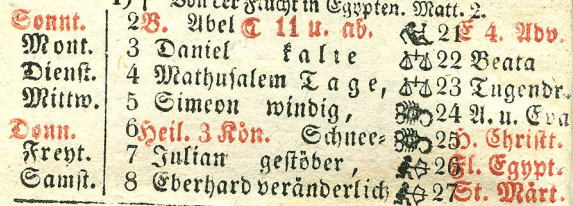 Von der Flucht in Egypten. Matt. 2.
Sonnt. 2 B. Abel ☾ 11 u. ab. 21 E 4. Adv.
Mont. 3 Daniel kalte 22 Beata
Dienst. 4 Mathusalem Tage, 23 Tugendr.
Mittw. 5 Simeon windig, 24 A. u. Eva
Donn. 6 Heil. 3 Kön. Schnee- 25 H. Christt.
Freyt. 7 Julian gestöber, 26 Fl. Egypt.
Samst. 8 Eberhard veränderlich 27 St. Märt.